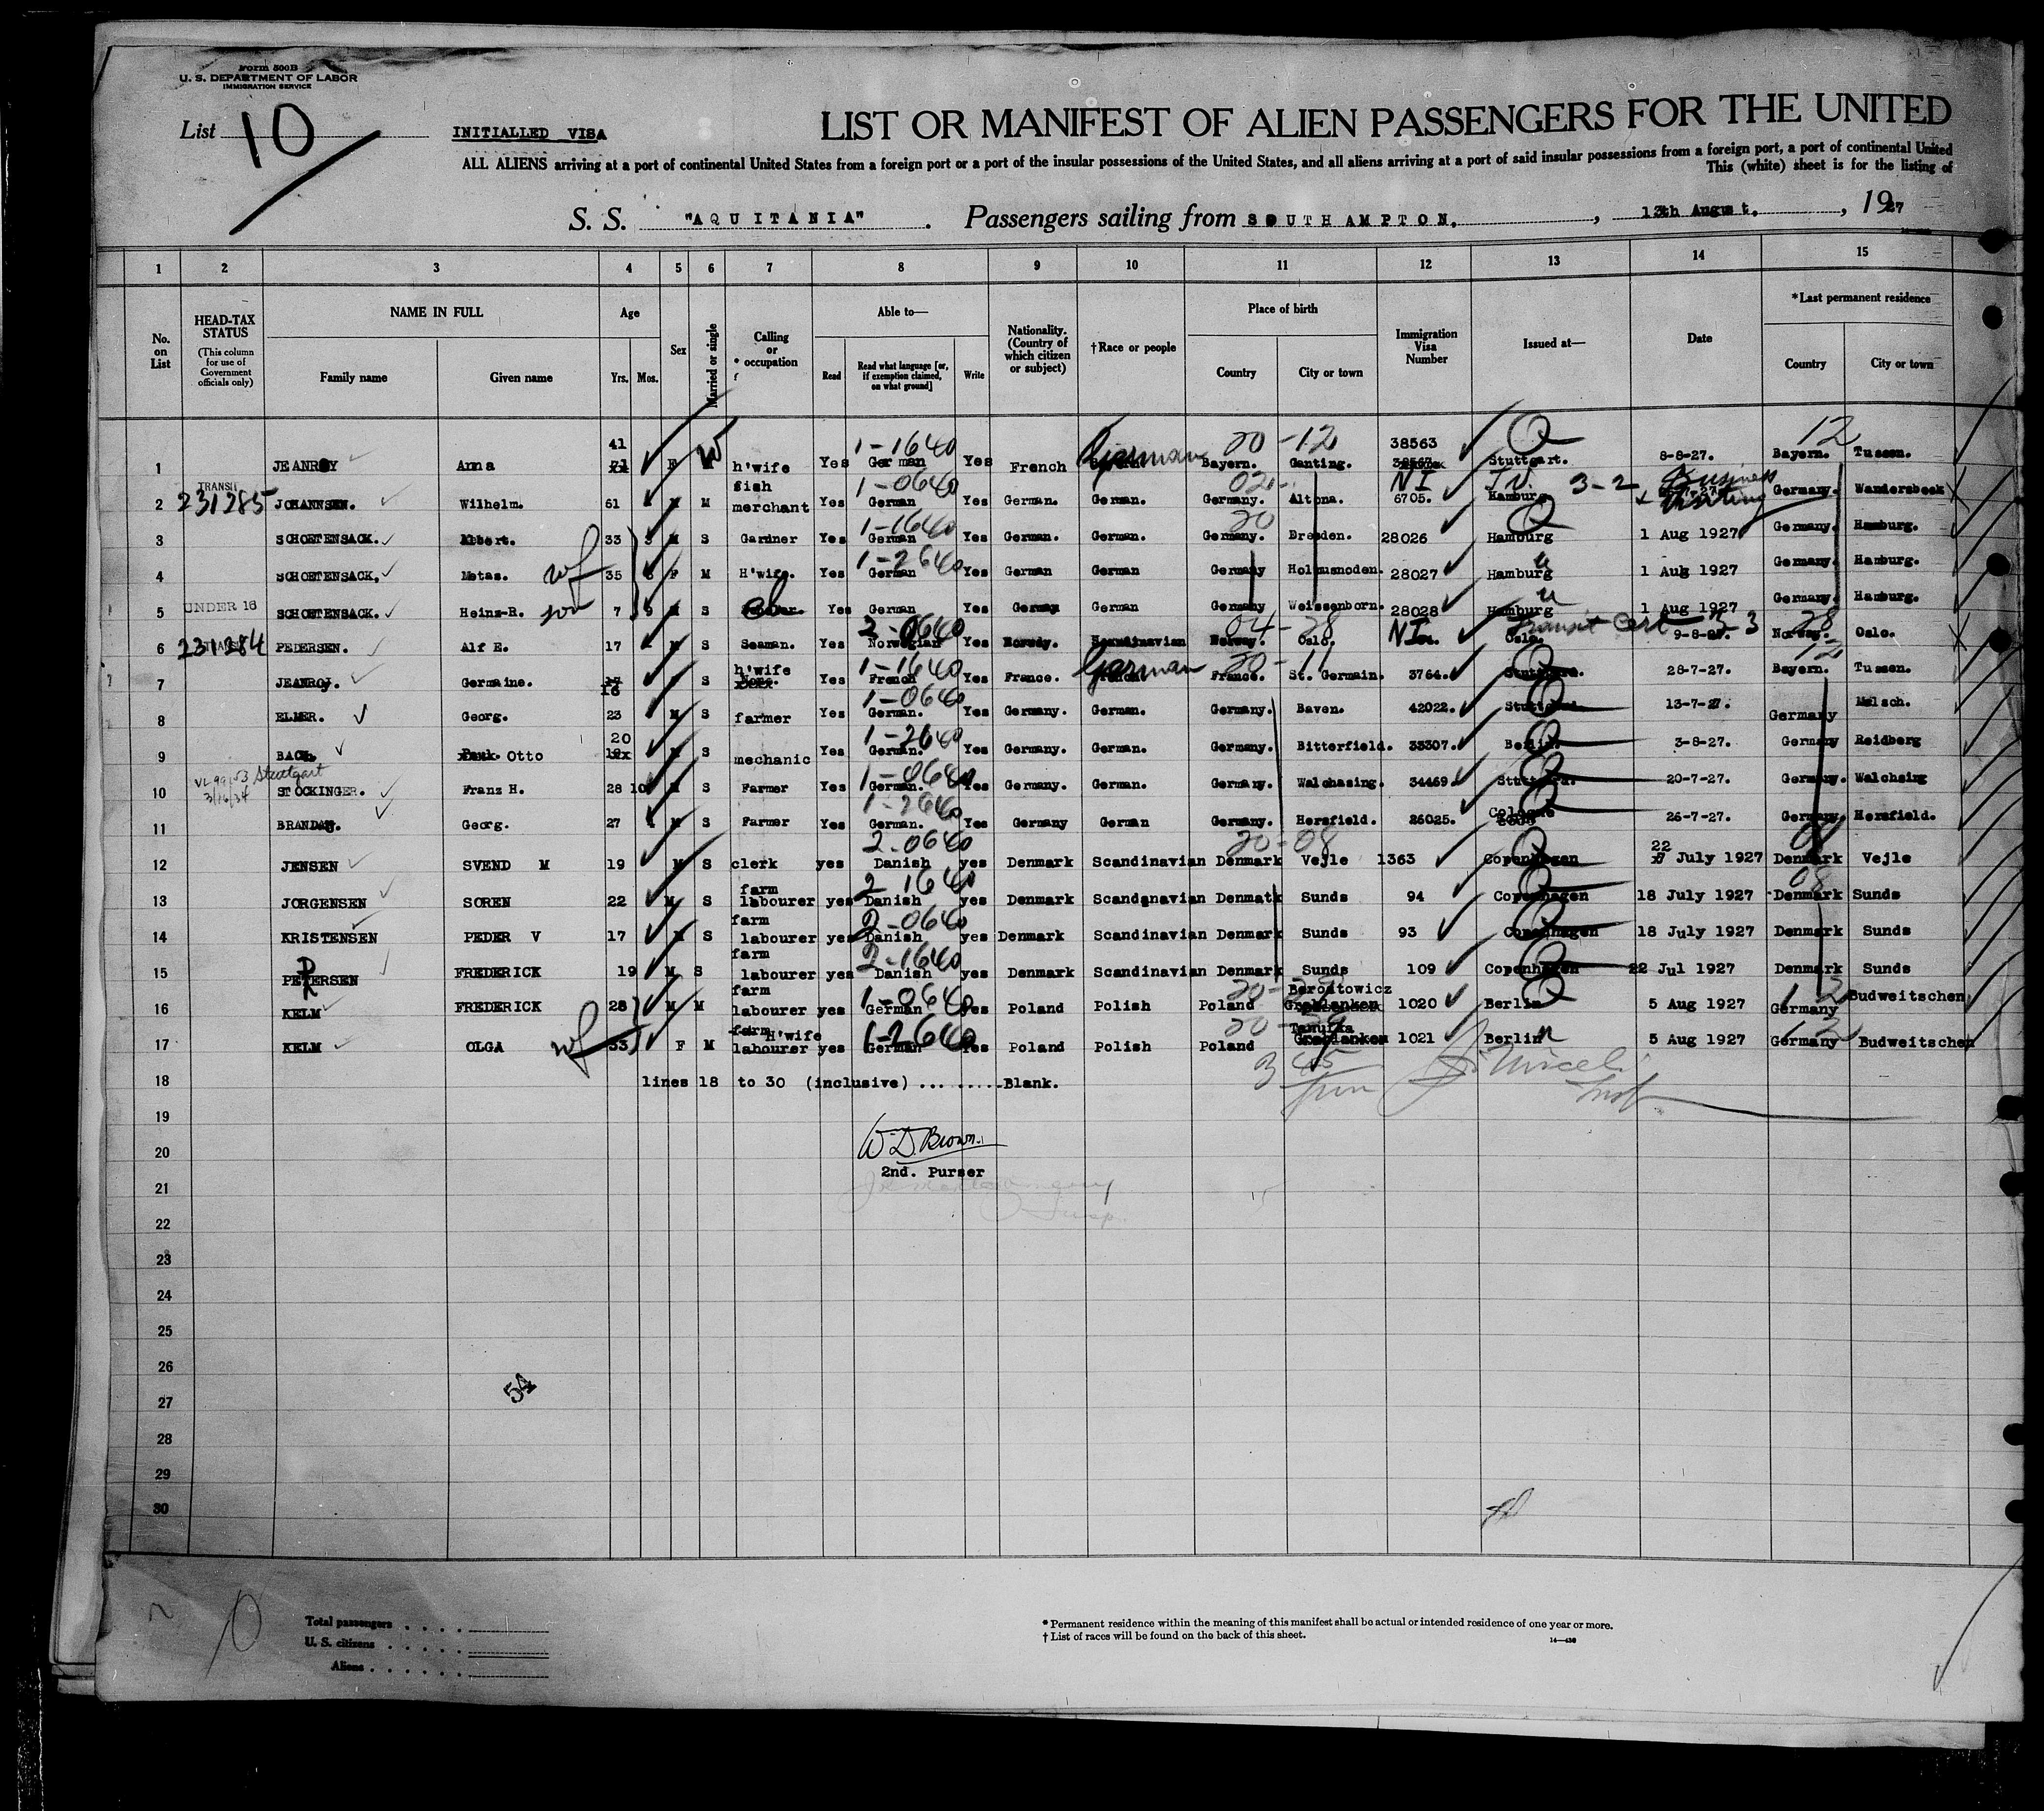 Form 500B
U. S. DEPARTMENT OF LABOR
IMMIGRATION SERVICE
List 10
INITIALLED VISA
LIST OR MANIFEST OF ALIEN PASSENGERS FOR THE UNITED
ALL ALIENS arriving at a port of continental United States from a foreign port or a port of the insular possessions of the United States, and all aliens arriving at a port of said insular possessions from a foreign port, a port of continental United
This (white) sheet is for the listing of
S. S. "AQUITANIA". Passengers sailing from SOUTHAMPTON, 13th August, 1927
1 2 3 4 5 6 7 8 9 10 11 12 13 14 15
No. on List
HEAD-TAX STATUS
(This column for use of Government officials only)
NAME IN FULL
Family name
Given name
Age
Yrs. Mos.
Sex
Married or single
Calling or occupation
Able to—
Read
Read what language [or, if exemption claimed, on what ground]
Write
Nationality. (Country of which citizen or subject)
†Race or people
Place of birth
Country
City or town
Immigration Visa Number
Issued at—
Date
*Last permanent residence
Country
City or town
41 1-1640 20-12 38563 12
1 JEANROY Anna W h'wife Yes German Yes French German Bayern. Ganting. Stuttgart. 8-8-27. Bayern. Tussen.
TRANSIT fish 1-0640 NI 3-2 Business
2 231285 JOHANNSEN. Wilhelm. 61 M M merchant Yes German Yes German. German. Germany. Altona. 6705. Hamburg Germany. Wandersbeek
1-1640 20
3 SCHOETENSACK. Albert. 33 M S Gardner Yes German Yes German. German. Germany. Dresden. 28026 Hamburg 1 Aug 1927 Germany. Hamburg.
wf 1-2640
4 SCHOETENSACK, Metas. 35 F M H'wife. Yes German Yes German German Germany Holmusnoden. 28027 Hamburg 1 Aug 1927 Germany. Hamburg.
5 UNDER 16 SCHOETENSACK. Heinz-R. son 7 9 M S Yes German Yes German German Germany Weissenborn. 28028 Hamburg 1 Aug 1927 Germany. Hamburg.
2-0640 04-28 NI Transit Cert 33 28
6 231284 PEDERSEN. Alf E. 17 M S Seaman. Yes Norwegian Yes Norway. Scandinavian Norway. Oslo. Oslo. 9-8-27. Norway. Oslo.
h'wife 1-1640 20-11 12
7 JEANROY. Germaine. 18 S Yes French Yes France. German France. St. Germain. 3764. 28-7-27. Bayern. Tussen.
1-0640
8 ELMER. Georg. 23 M S farmer Yes German. Yes Germany. German. Germany. Baven. 42022. 13-7-27. Germany Malsch.
20 1-2640
9 BACH. Otto M S mechanic Yes German. Yes Germany. German. Germany. Bitterfield. 33307. Berlin. 3-8-27. Germany Reidberg
Stuttgart 3/16/34
10 STOCKINGER. Franz H. 28 10 M S Farmer Yes German. Yes Germany. German. Germany. Walchsing. 34469 Stuttgard. 20-7-27. Germany. Walchsing
1-2640
11 BRANDAU. Georg. 27 M S Farmer Yes German. Yes Germany German Germany. Hersfield. 26025. Cologne 26-7-27. Germany. Hersfield.
2-0640 20-08 22 08
12 JENSEN SVEND M 19 M S clerk yes Danish yes Denmark Scandinavian Denmark Vejle 1363 Copenhagen July 1927 Denmark Vejle
farm 2 1640 08
13 JORGENSEN SOREN 22 M S labourer yes Danish yes Denmark Scandanavian Denmatk Sunds 94 Copenhagen 18 July 1927 Denmark Sunds
farm 2-0640
14 KRISTENSEN PEDER V 17 M S labourer yes Danish yes Denmark Scandinavian Denmark Sunds 93 Copenhagen 18 July 1927 Denmark Sunds
farm 2-1640
15 PETERSEN FREDERICK 19 M S labourer yes Danish yes Denmark Scandinavian Denmark Sunds 109 Copenhagen 22 Jul 1927 Denmark Sunds
farm 1-0640 Beroitowicz
16 KELM FREDERICK 28 M M labourer yes German Yes Poland Polish Poland 1020 Berlin 5 Aug 1927 Germany Budweitschen
wf farm H'wife 1-2640
17 KELM OLGA 33 F M labourer yes German Yes Poland Polish Poland 1021 Berlin 5 Aug 1927 Germany Budweitschen
18 lines 18 to 30 (inclusive) .........Blank.
19
20 W. D. Brown.
2nd. Purser
21
22
23
24
25
26
27 54
28
29
30
Total passengers . . . .
U. S. citizens . . . . .
Aliens . . . . . .
*Permanent residence within the meaning of this manifest shall be actual or intended residence of one year or more.
†List of races will be found on the back of this sheet.
14—430